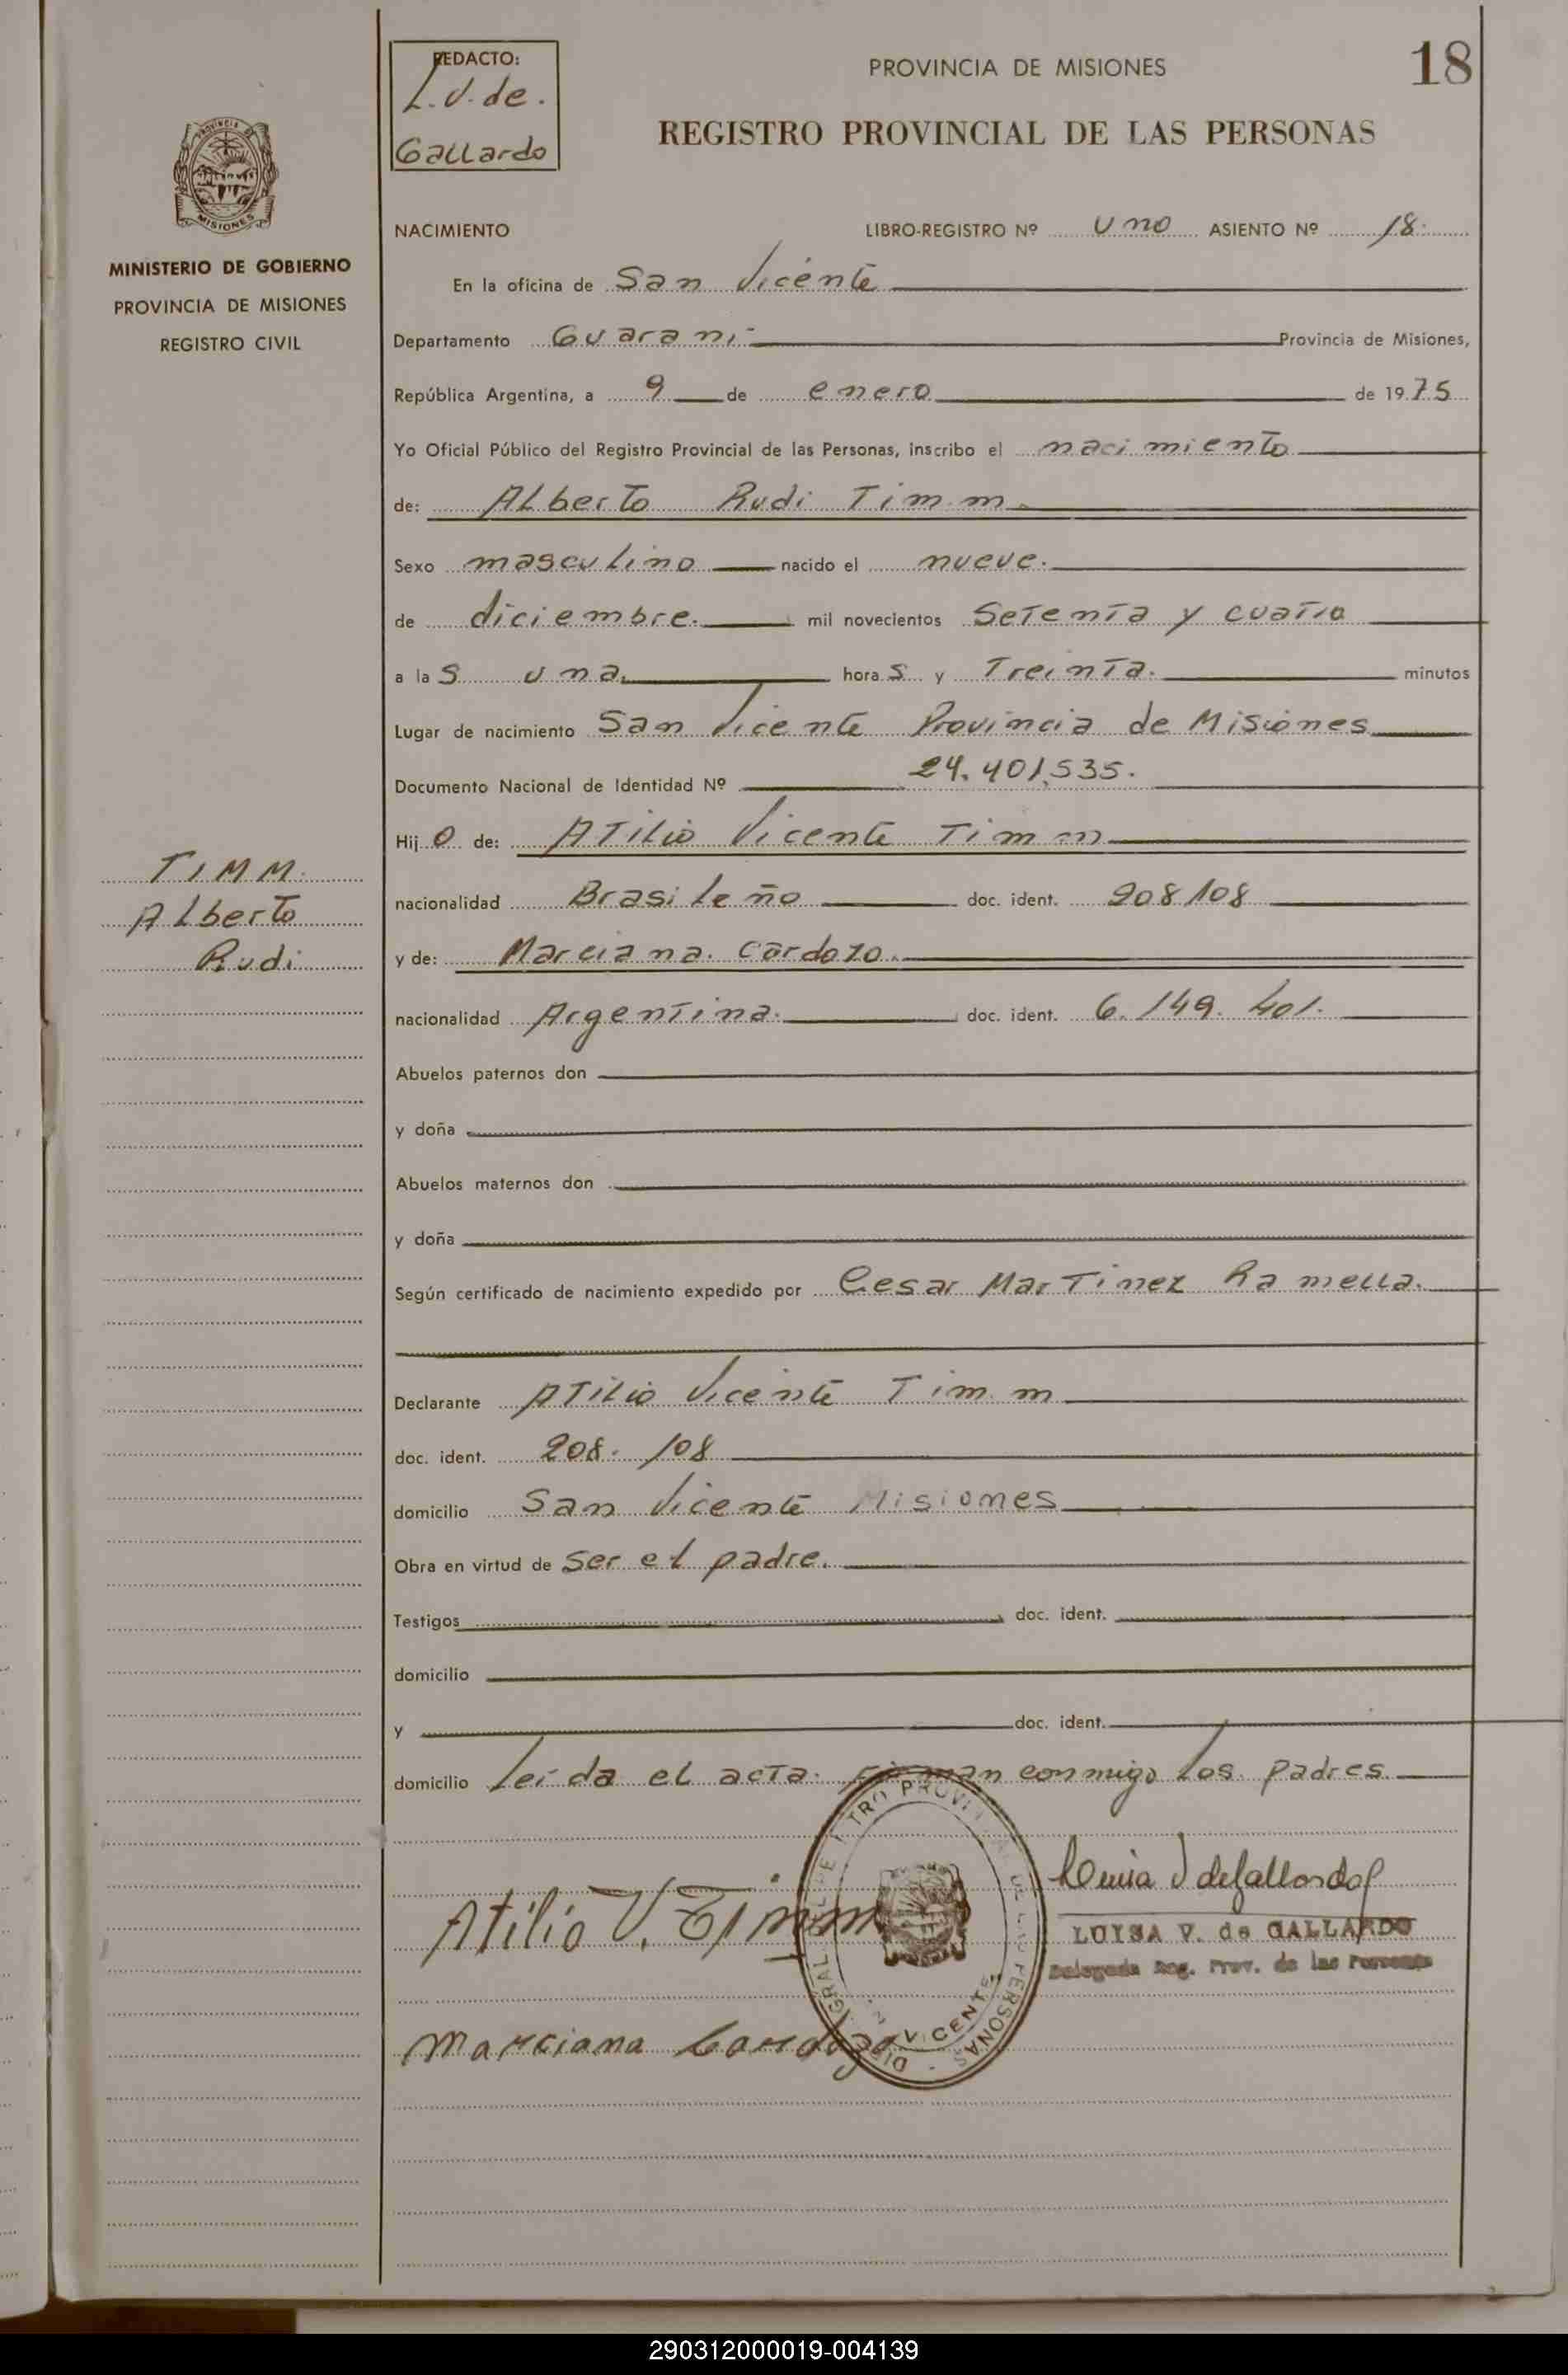 REDACTO:
L. V. de.
Gallardo
PROVINCIA DE MISIONES
18
REGISTRO PROVINCIAL DE LAS PERSONAS
MISIONES
MINISTERIO DE GOBIERNO
PROVINCIA DE MISIONES
REGISTRO CIVIL
NACIMIENTO LIBRO-REGISTRO Nº uno ASIENTO Nº 18.
En la oficina de San Vicente
Departamento Guarani Provincia de Misiones,
República Argentina, a 9 de enero de 1975
Yo Oficial Público del Registro Provincial de las Personas, inscribo el nacimiento
de: Alberto Rudi Timm.
Sexo masculino nacido el nueve.
de diciembre. mil novecientos Setenta y cuatro
a las una. horas y Treinta. minutos
Lugar de nacimiento San Vicente Provincia de Misiones
Documento Nacional de Identidad Nº 24.401.535.
Hijo de: Atilio Vicente Timm
TIMM.
Alberto
Rudi
nacionalidad Brasileño doc. ident. 208.108
y de: Marciana. Cardozo.
nacionalidad Argentina. doc. ident. 6.149.401.
Abuelos paternos don
y doña
Abuelos maternos don
y doña
Según certificado de nacimiento expedido por Cesar Martinez Ramella.
Declarante Atilio Vicente Timm
doc. ident. 208.108
domicilio San Vicente Misiones
Obra en virtud de ser el padre.
Testigos doc. ident.
domicilio
y doc. ident.
domicilio Leida el acta. Firman conmigo los padres.
Atilio V. Timm
Luisa V de Gallardo
LUISA V. de GALLARDO
Delegada Reg. Prov. de las Personas
Marciana Cardozo
VICENTE
290312000019-004139